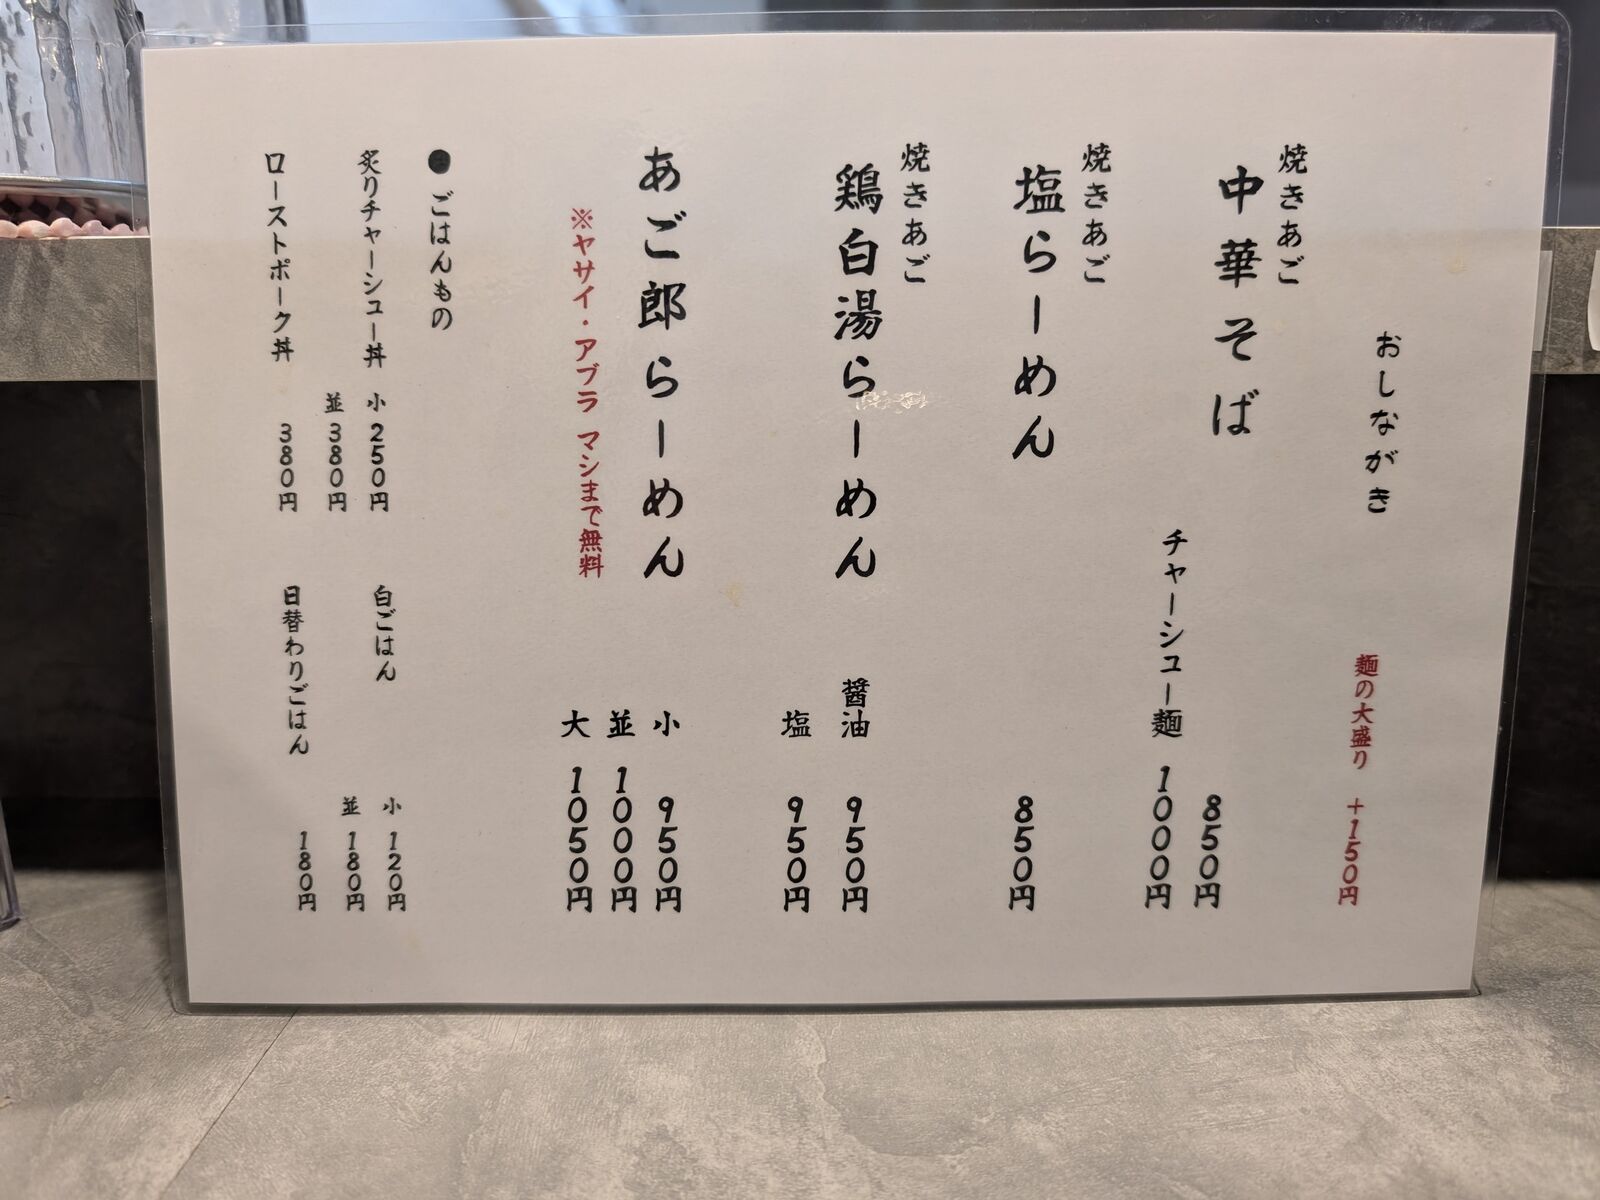 おしながき
麺の大盛り ＋150円
焼きあご
中華そば 850円
チャーシュー麺 1000円
焼きあご
塩らーめん 850円
焼きあご
鶏白湯らーめん 醤油 950円
塩 950円
あご郎らーめん 小 950円
並 1000円
※ヤサイ・アブラ マシまで無料
大 1050円
●ごはんもの
炙りチャーシュー丼 小 250円
並 380円
ローストポーク丼 380円
白ごはん 小 120円
並 180円
日替わりごはん 180円